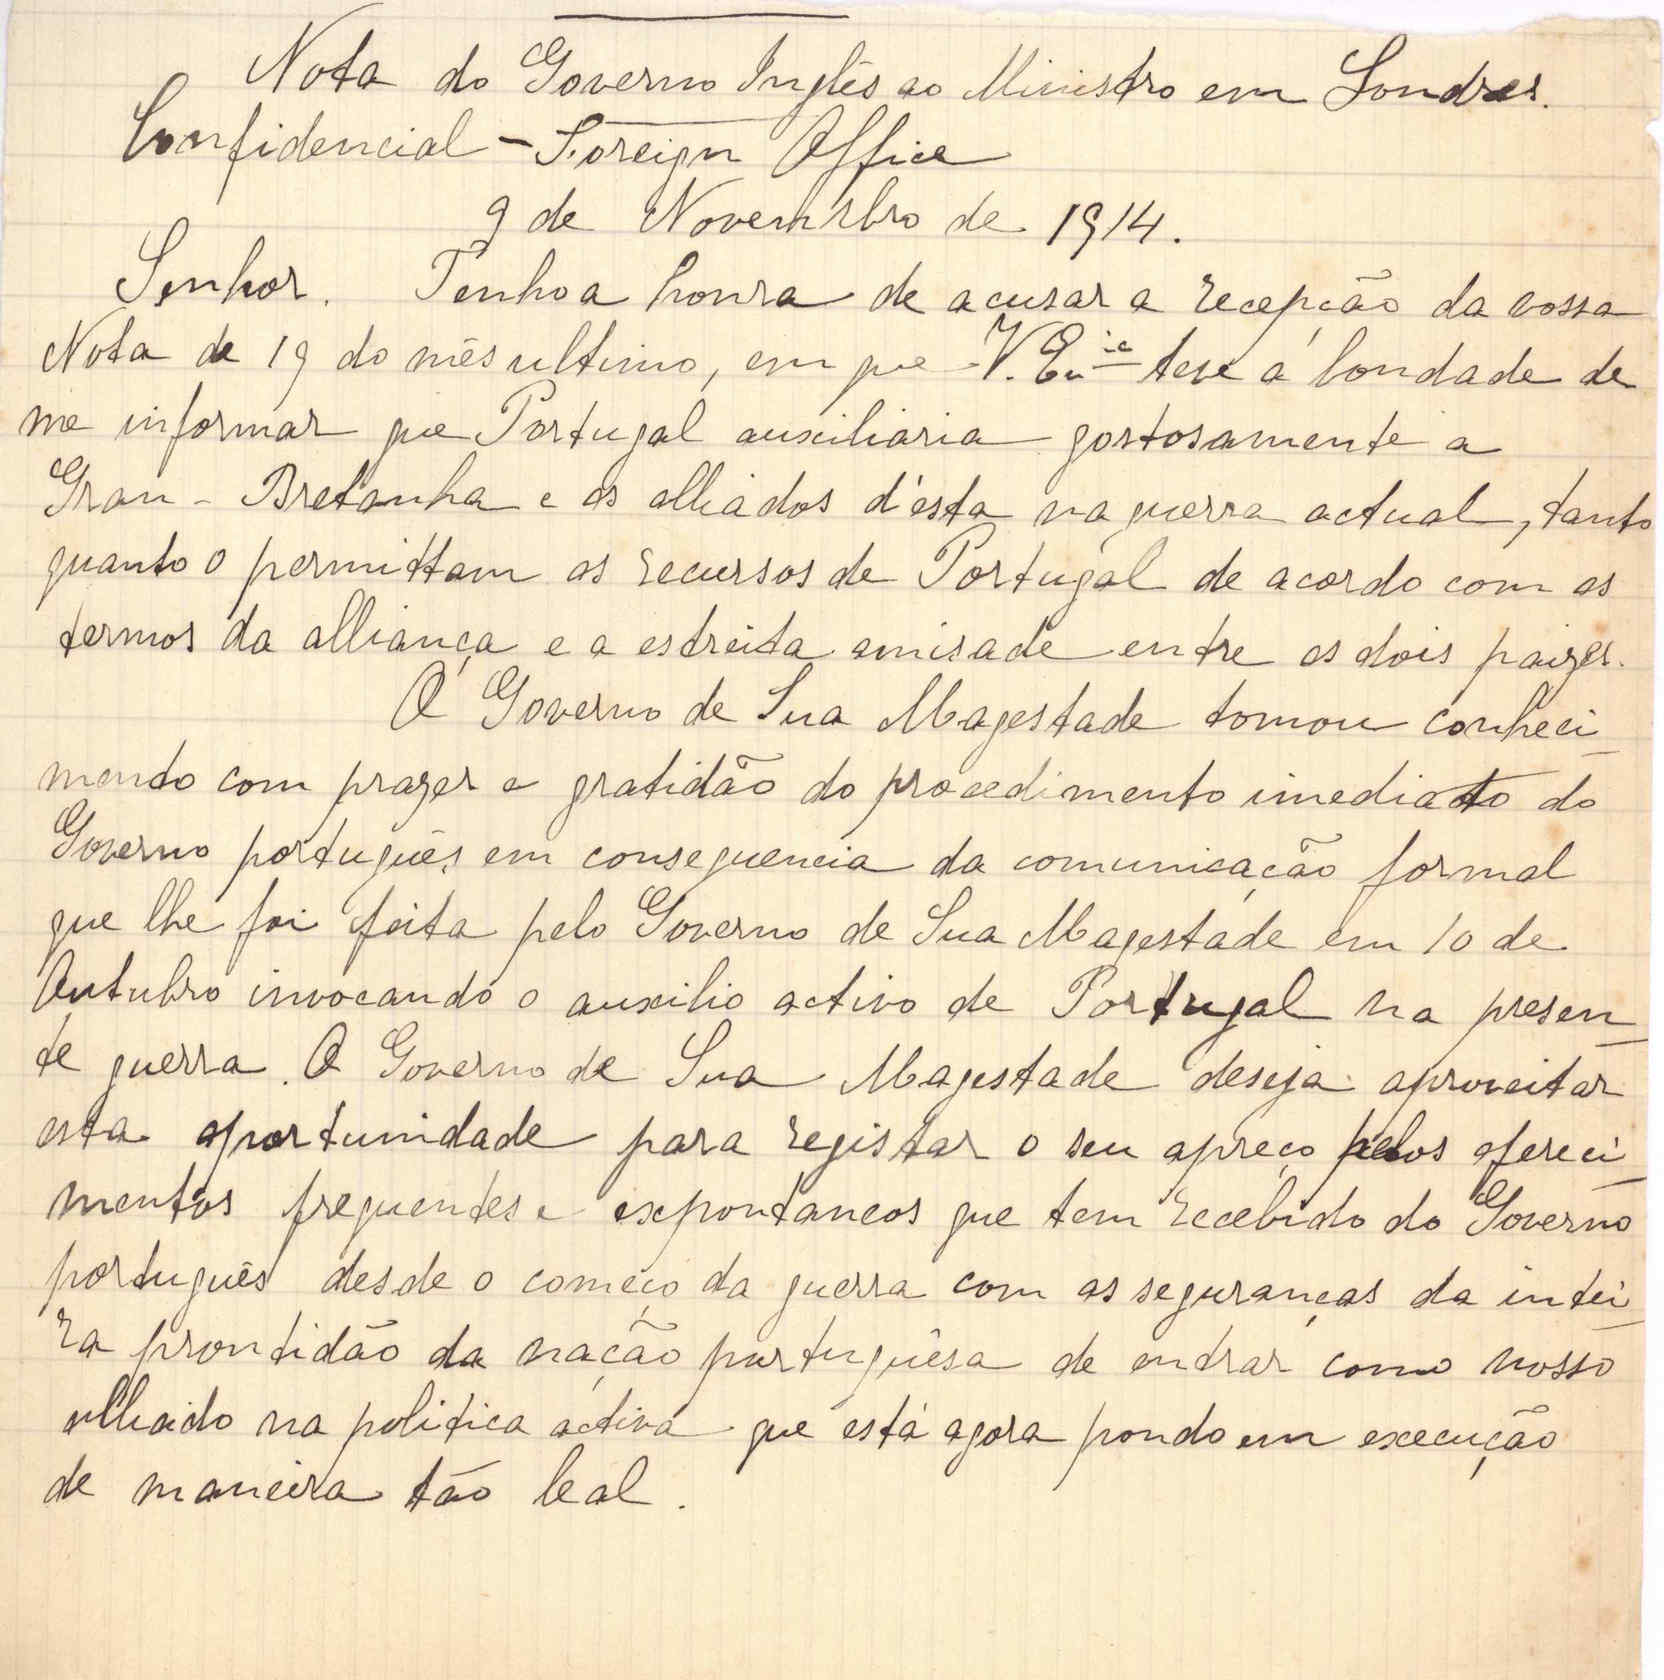 Nota do Governo Inglês ao Ministro em Londres.
Confidencial - Foreign Office
9 de Novembro de 1914.
Senhor. Tenho a honra de acusar a recepção da vossa
Nota de 19 do mês ultimo, em que V. teve a bondade de
me informar que Portugal auxiliaria gostosamente a
Gran-Bretanha e os alliados d'esta na guerra actual, tanto
quanto o permittam os recursos de Portugal de acordo com os
termos da alliança e a estreita amisade entre os dois paizes.
O Governo de Sua Magestade tomou conheci-
mento com prazer e gratidão do procedimento imediato do
Governo português em consequencia da comunicação formal
que lhe foi feita pelo Governo de Sua Magestade em 10 de
Outubro invocando o auxilio activo de Portugal na presen-
te guerra. O Governo de Sua Magestade deseja aproveitar
esta oportunidade para registar o seu apreço pelos ofereci-
mentos frequentes e expontaneos que tem recebido do Governo
português desde o começo da guerra com as seguranças da intei-
ra prontidão da nação portuguêsa de entrar como nosso
alliado na politica activa que está agora pondo em execução
de maneira tão leal.